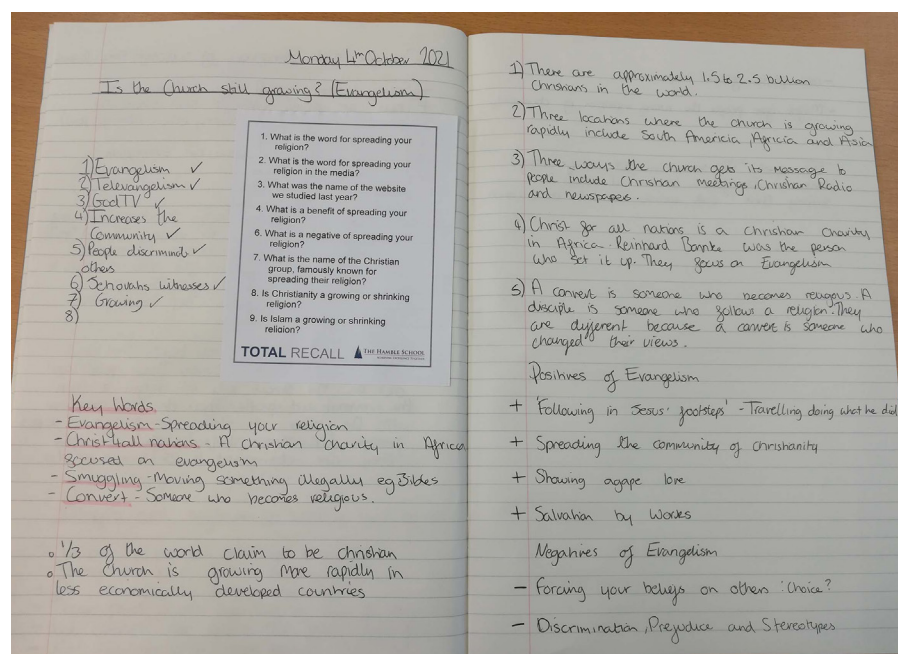 Monday 4th October 2021
Is the Church still growing? (Evangelism)
1) Evangelism ✓
2) Televangelism ✓
3) GodTV ✓
4) Increases the
Community ✓
5) People discriminate ✓
others
6) Jehovahs witnesses ✓
7) Growing ✓
8)
1. What is the word for spreading your
religion?
2. What is the word for spreading your
religion in the media?
3. What was the name of the website
we studied last year?
4. What is a benefit of spreading your
religion?
6. What is a negative of spreading your
religion?
7. What is the name of the Christian
group, famously known for
spreading their religion?
8. Is Christianity a growing or shrinking
religion?
9. Is Islam a growing or shrinking
religion?
TOTAL RECALL
THE HAMBLE SCHOOL
Key Words
- Evangelism - Spreading your religion
- Christ4all nations - A christian charity in Africa
focused on evangelism
- Smuggling - Moving something illegally eg Bibles
- Convert - Someone who becomes religious.
° 1/3 of the world claim to be christian
° The Church is growing more rapidly in
less economically developed countries
1) There are approximately 1.5 to 2.5 billion
Christians in the world.
2) Three locations where the church is growing
rapidly include South Americia, Africia and Asia
3) Three ways the church gets its message to
people include Christian meetings, Christian Radio
and newspapers.
4) Christ for all nations is a christian charity
in Africa. Reinhard Bonnke was the person
who set it up. They focus on Evangelism
5) A convert is someone who becomes religous. A
disciple is someone who follows a religion. They
are different because a convert is someone who
changed their views.
Positives of Evangelism
+ 'Following in Jesus' footsteps' - Travelling doing what he did
+ Spreading the community of christianity
+ Showing agape love
+ Salvation by Works
Negatives of Evangelism
- Forcing your beliefs on others : Choice?
- Discrimination, Prejudice and Stereotypes